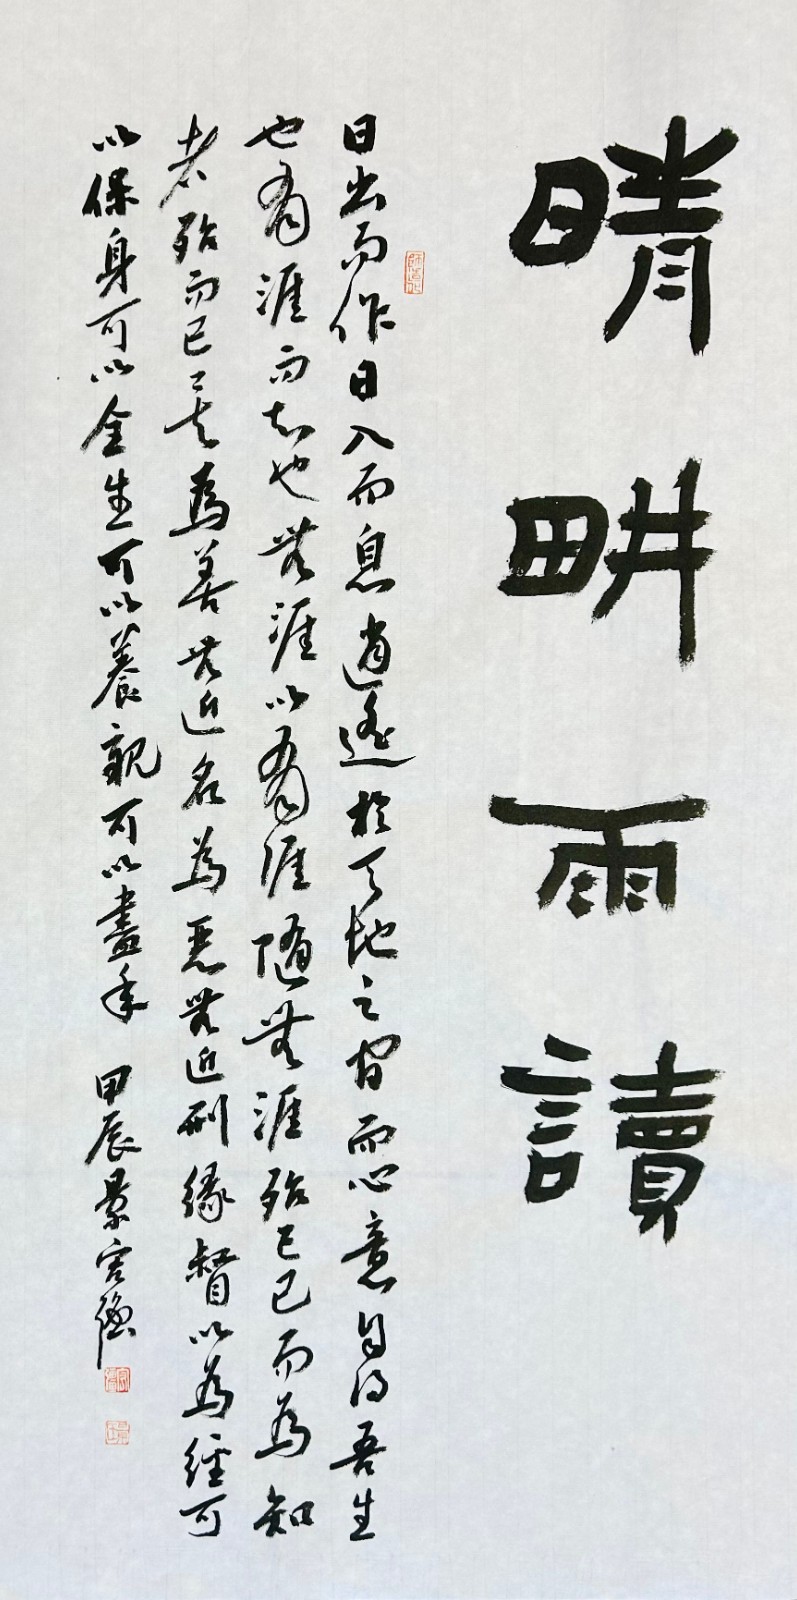 晴畊雨讀
日出而作日入而息逍遙於天地之間而心意自得吾生
也有涯而知也無涯以有涯隨無涯殆已已而為知
者殆而已矣為善無近名為惡無近刑緣督以為經可
以保身可以全生可以養親可以盡年 甲辰景